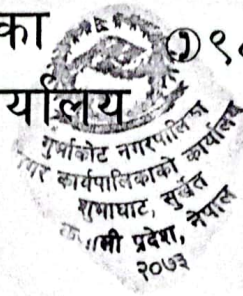 का
र्यालय
९
गुर्भाकोट नगरपालिका
नगर कार्यपालिकाको कार्यालय
रामघाट, सुर्खेत
कर्णाली प्रदेश, नेपाल
२०७३